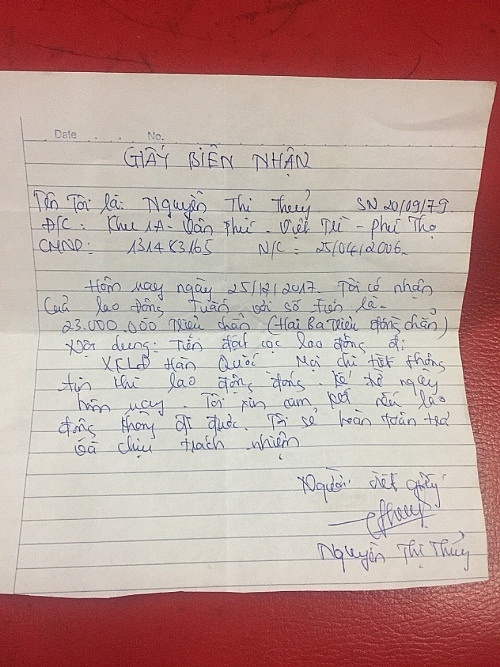 Date . . No.
GIẤY BIÊN NHẬN
Tên Tôi là: Nguyễn Thị Thuỷ SN 20/09/79
Đ/C: Khu 1A - Vân Phú - Việt Trì - Phú Thọ
CMND: 131483165 N/C: 25/04/2006.
Hôm nay ngày 25/12/2017. Tôi có nhận
Của lao động Tuấn với số tiền là.
23.000.000 triệu chẵn (Hai Ba triệu đồng chẵn)
Nội dung: Tiền đặt cọc lao động đi
XKLĐ Hàn Quốc Mọi chi tiết thông
tin thì lao động đóng. Kể từ ngày
hôm nay. Tôi xin cam kết nếu lao
động không đi được. Tôi sẽ hoàn toàn trả
và chịu trách nhiệm
Người viết giấy
Nguyễn Thị Thủy